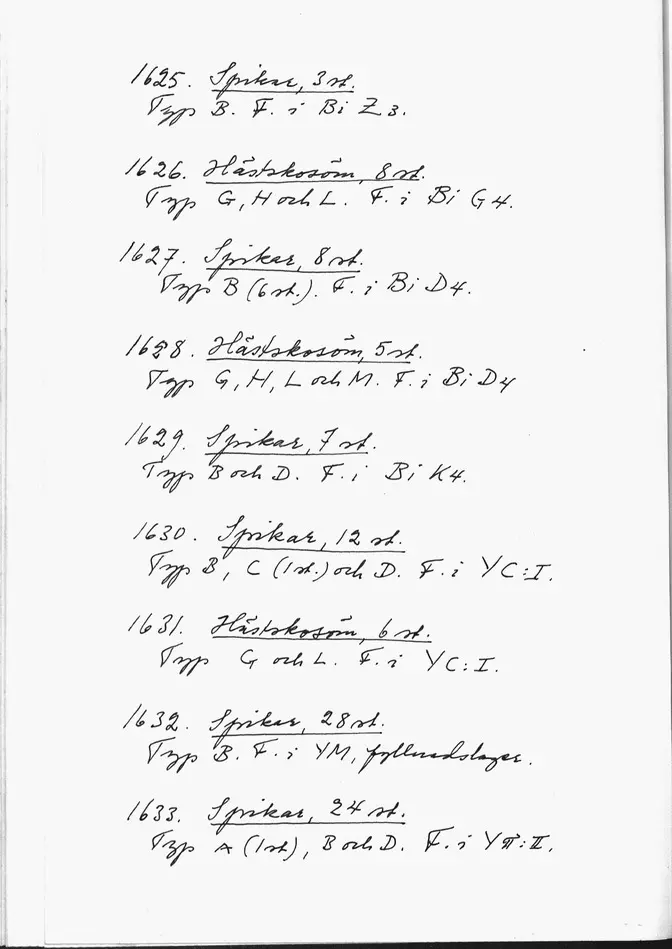 1625. Spikar, 3 st.
Typ B. F. i Bi Z3.
1626. Hästskosöm, 8 st.
Typ G, H och L. F. i Bi G4.
1627. Spikar, 8 st.
Typ B (6 st.). F. i Bi D4.
1628. Hästskosöm, 5 st.
Typ G, H, L och M. F. i Bi D4
1629. Spikar, 7 st.
Typ B och D. F. i Bi K4.
1630. Spikar, 12 st.
Typ B, C (1 st.) och D. F. i YC:I.
1631. Hästskosöm, 6 st.
Typ G och L. F. i YC:I.
1632. Spikar, 28 st.
Typ B. F. i YM, fyllnadslager.
1633. Spikar, 24 st.
Typ A (1 st), B och D. F. i Y:II.